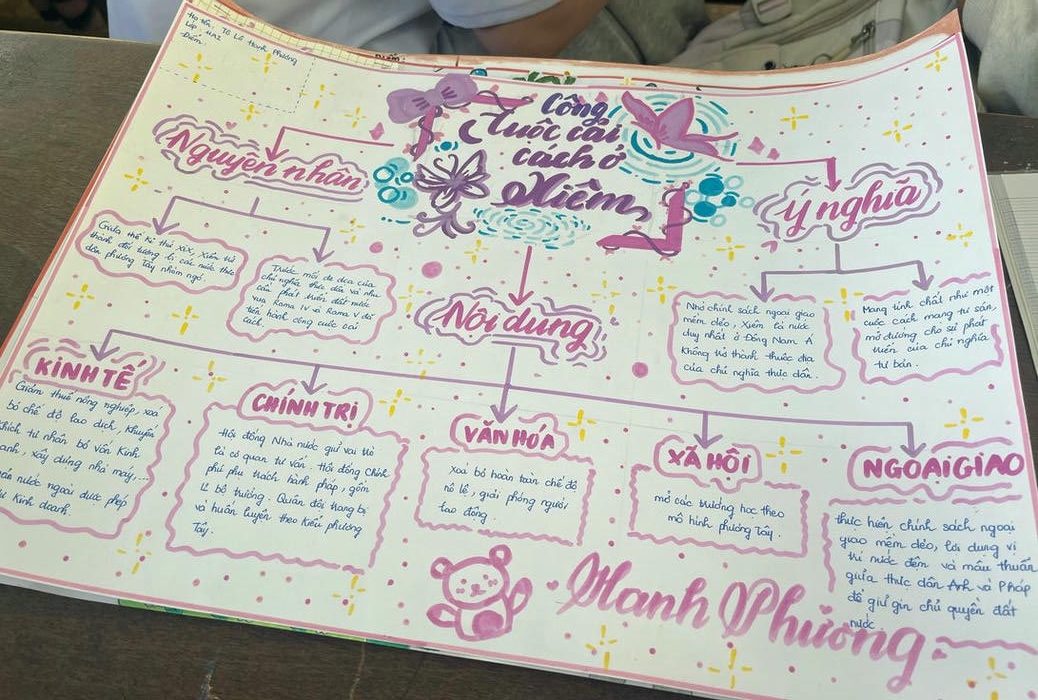 Họ tên: Tô Lê Hạnh Phương
Lớp: 11A2
Điểm:
Công
cuộc cải
cách ở
Xiêm
Nguyên nhân
Giữa thế kỉ thứ XIX, Xiêm trở
thành đối tượng bị các nước thực
dân phương Tây nhòm ngó.
Trước mối đe dọa của
chủ nghĩa thực dân và nhu
cầu phát triển đất nước
vua Rama IV và Rama V đã
tiến hành công cuộc cải
cách.
Ý nghĩa
Nhờ chính sách ngoại giao
mềm dẻo, Xiêm là nước
duy nhất ở Đông Nam Á
không trở thành thuộc địa
của chủ nghĩa thực dân.
Mang tính chất như một
cuộc cách mạng tư sản,
mở đường cho sự phát
triển của chủ nghĩa
tư bản.
Nội dung
KINH TẾ
Giảm thuế nông nghiệp, xoá
bỏ chế độ lao dịch, khuyến
khích tư nhân bỏ vốn kinh
doanh, xây dựng nhà máy,...
nước ngoài được phép
kinh doanh.
CHÍNH TRỊ
Hội đồng Nhà nước giữ vai trò
là cơ quan tư vấn. Hội đồng Chính
phủ phụ trách hành pháp, gồm
12 bộ trưởng. Quân đội trang bị
và huấn luyện theo kiểu phương
Tây.
VĂN HÓA
Xoá bỏ hoàn toàn chế độ
nô lệ, giải phóng người
lao động.
XÃ HỘI
mở các trường học theo
mô hình phương Tây.
NGOẠI GIAO
thực hiện chính sách ngoại
giao mềm dẻo, lợi dụng vị
trí nước đệm và mâu thuẫn
giữa thực dân Anh và Pháp
để giữ gìn chủ quyền đất
nước
Hanh Phương